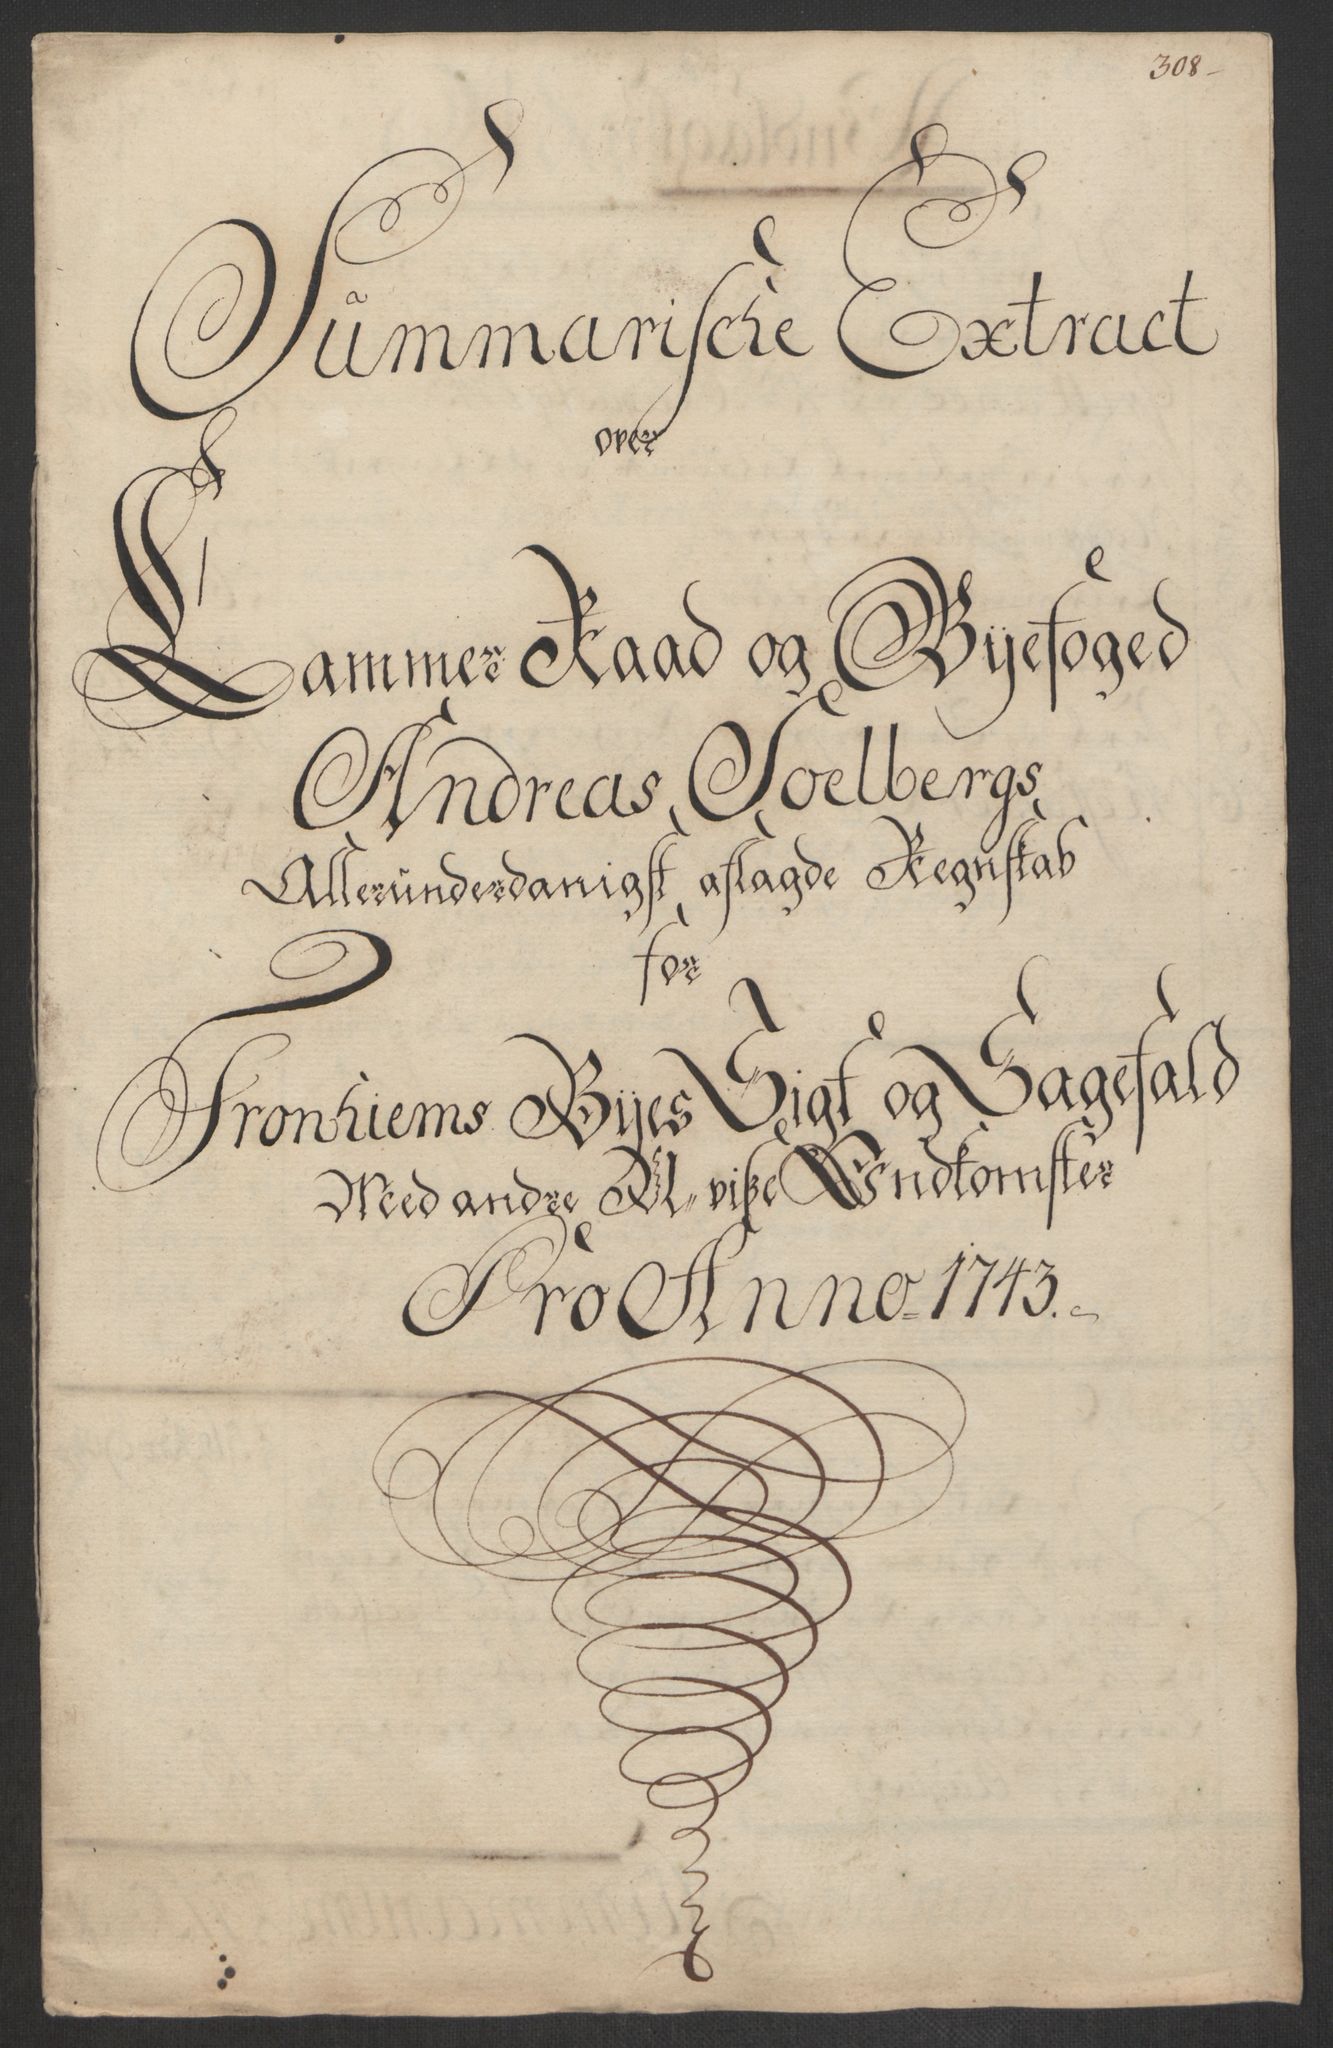 308
Summarische Extract
over
Cammer Raad og Byefoged
Andreas Soelbergs
Allerunderdanigst aflagde Regnskab
for
Tronhiems Byes Sigt og Sagefald
Med andre U-viße Indkomster
Pro Anno 1743.